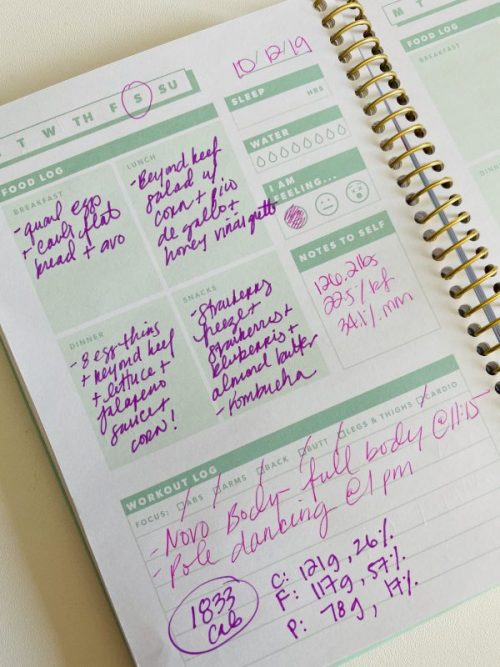 10/12/19
T W TH F S SU
SLEEP
HRS
WATER
I AM
FEELING...
NOTES TO SELF
126.2lbs
22.5% bf
34.1% mm
FOOD LOG
BREAKFAST
-quail egg
+ cauli flat
bread + avo
LUNCH
-Beyond beef
salad w/
corn + pico
de gallo +
honey vinaigrette
DINNER
egg thins
+ beyond beef
+ lettuce +
jalapeno
sauce +
corn!
SNACKS
-Strawberry
strawberries +
blueberries +
almond butter
-Kombucha
WORKOUT LOG
FOCUS: ABS ARMS BACK BUTT LEGS & THIGHS CARDIO
-Novo Body full body @11:15
-Pole dancing @1pm
1833
cal
C: 121g, 26%
F: 117g, 57%
P: 78g, 17%
M T
FOOD LOG
BREAKFAST